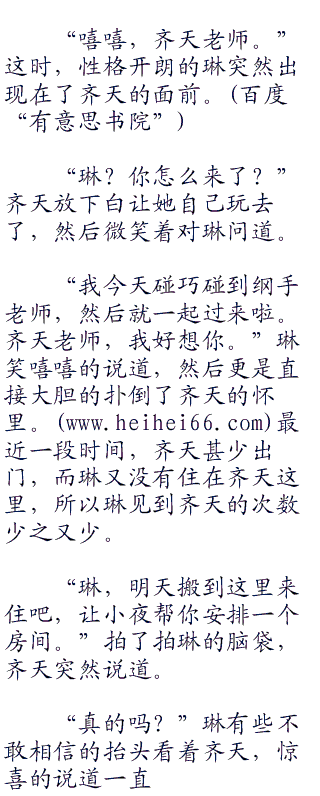 “嘻嘻，齐天老师。”
这时，性格开朗的琳突然出
现在了齐天的面前。(百度
“有意思书院”)
“琳？你怎么来了？”
齐天放下白让她自己玩去
了，然后微笑着对琳问道。
“我今天碰巧碰到纲手
老师，然后就一起过来啦。
齐天老师，我好想你。”琳
笑嘻嘻的说道，然后更是直
接大胆的扑倒了齐天的怀
里。(www.heihei66.com)最
近一段时间，齐天甚少出
门，而琳又没有住在齐天这
里，所以琳见到齐天的次数
少之又少。
“琳，明天搬到这里来
住吧，让小夜帮你安排一个
房间。”拍了拍琳的脑袋，
齐天突然说道。
“真的吗？”琳有些不
敢相信的抬头看着齐天，惊
喜的说道一直